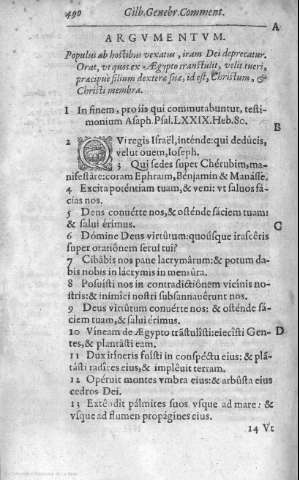 490 Gilb. Genebr. Comment.
A
ARGVMENTVM.
Populus ab hostibus vexatus, iram Dei deprecatur.
Orat, vt quos ex Ægypto transtulit, velit tueri,
præcipuè filium dexteræ suæ, id est, Christum, &
Christi membra.
1 In finem, pro iis qui commutabuntur, testi-
monium Asaph. Psal. LXXIX. Heb. 80.
B
2 QVi regis Israël, inténde: qui dedúcis,
velut ouem, Ioseph.
3 Qui sedes super Chérubim, ma-
nifestáre: coram Ephraim, Béniamin & Manásse.
4 Excita poténtiam tuam, & veni: vt saluos fá-
cias nos.
5 Deus conuérte nos, & osténde fáciem tuam:
& salui érimus.
C
6 Dómine Deus virtútum: quoúsque irascéris
super oratiónem serui tui?
7 Cibábis nos pane lacrymárum: & potum da-
bis nobis in lacrymis in mensúra.
8 Posuisti nos in contradictiónem vicinis no-
stris: & inimíci nostri subsannauérunt nos.
9 Deus virtútum conuérte nos: & osténde fá-
ciem tuam, & salui érimus.
10 Vineam de Ægypto trãstulísti: eiecísti Gen-
tes, & plantásti eam.
D
11 Dux itíneris fuísti in conspéctu eius: & plã-
tásti radíces eius, & impléuit terram.
12 Opéruit montes vmbra eius: & arbústa eius
cedros Dei.
13 Extẽdit pálmites suos vsque ad mare: &
vsque ad flumen propágines eius.
14 Vt